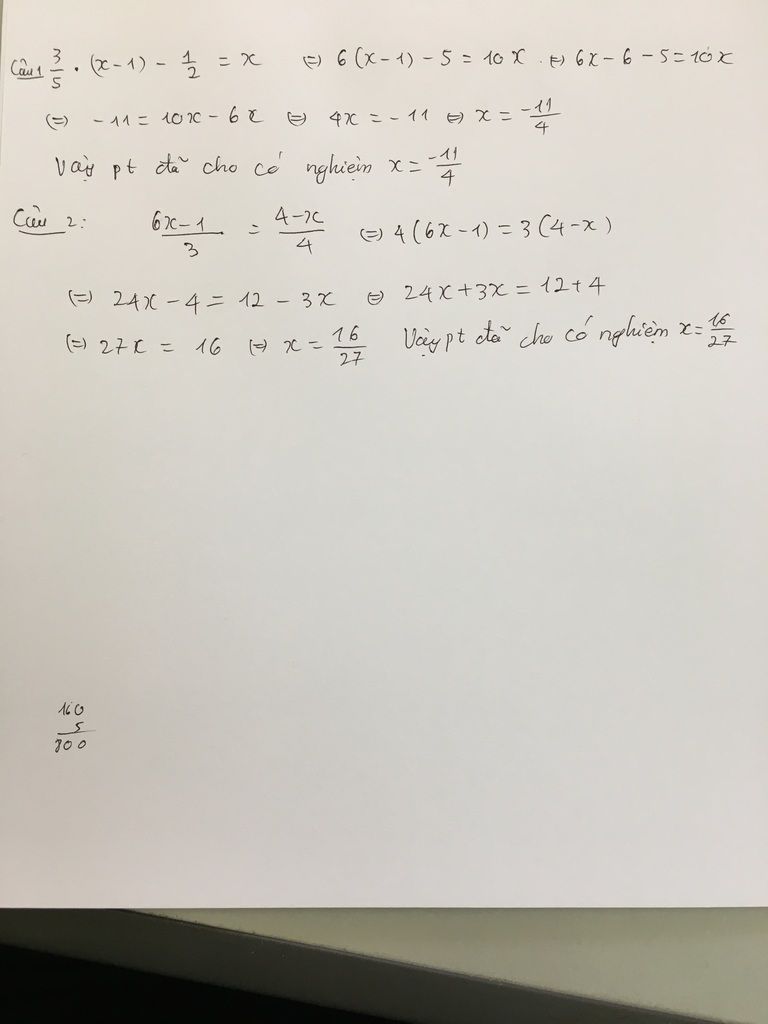 Câu 1 3/5 . (x-1) - 1/2 = x (=) 6(x-1) - 5 = 10x (=) 6x - 6 - 5 = 10x
(=) -11 = 10x - 6x (=) 4x = -11 (=) x = -11/4
Vậy pt đã cho có nghiệm x = -11/4
Câu 2: 6x-1/3 = 4-x/4 (=) 4(6x-1) = 3(4-x)
(=) 24x - 4 = 12 - 3x (=) 24x + 3x = 12 + 4
(=) 27x = 16 (=) x = 16/27 Vậy pt đã cho có nghiệm x = 16/27
160
5
800